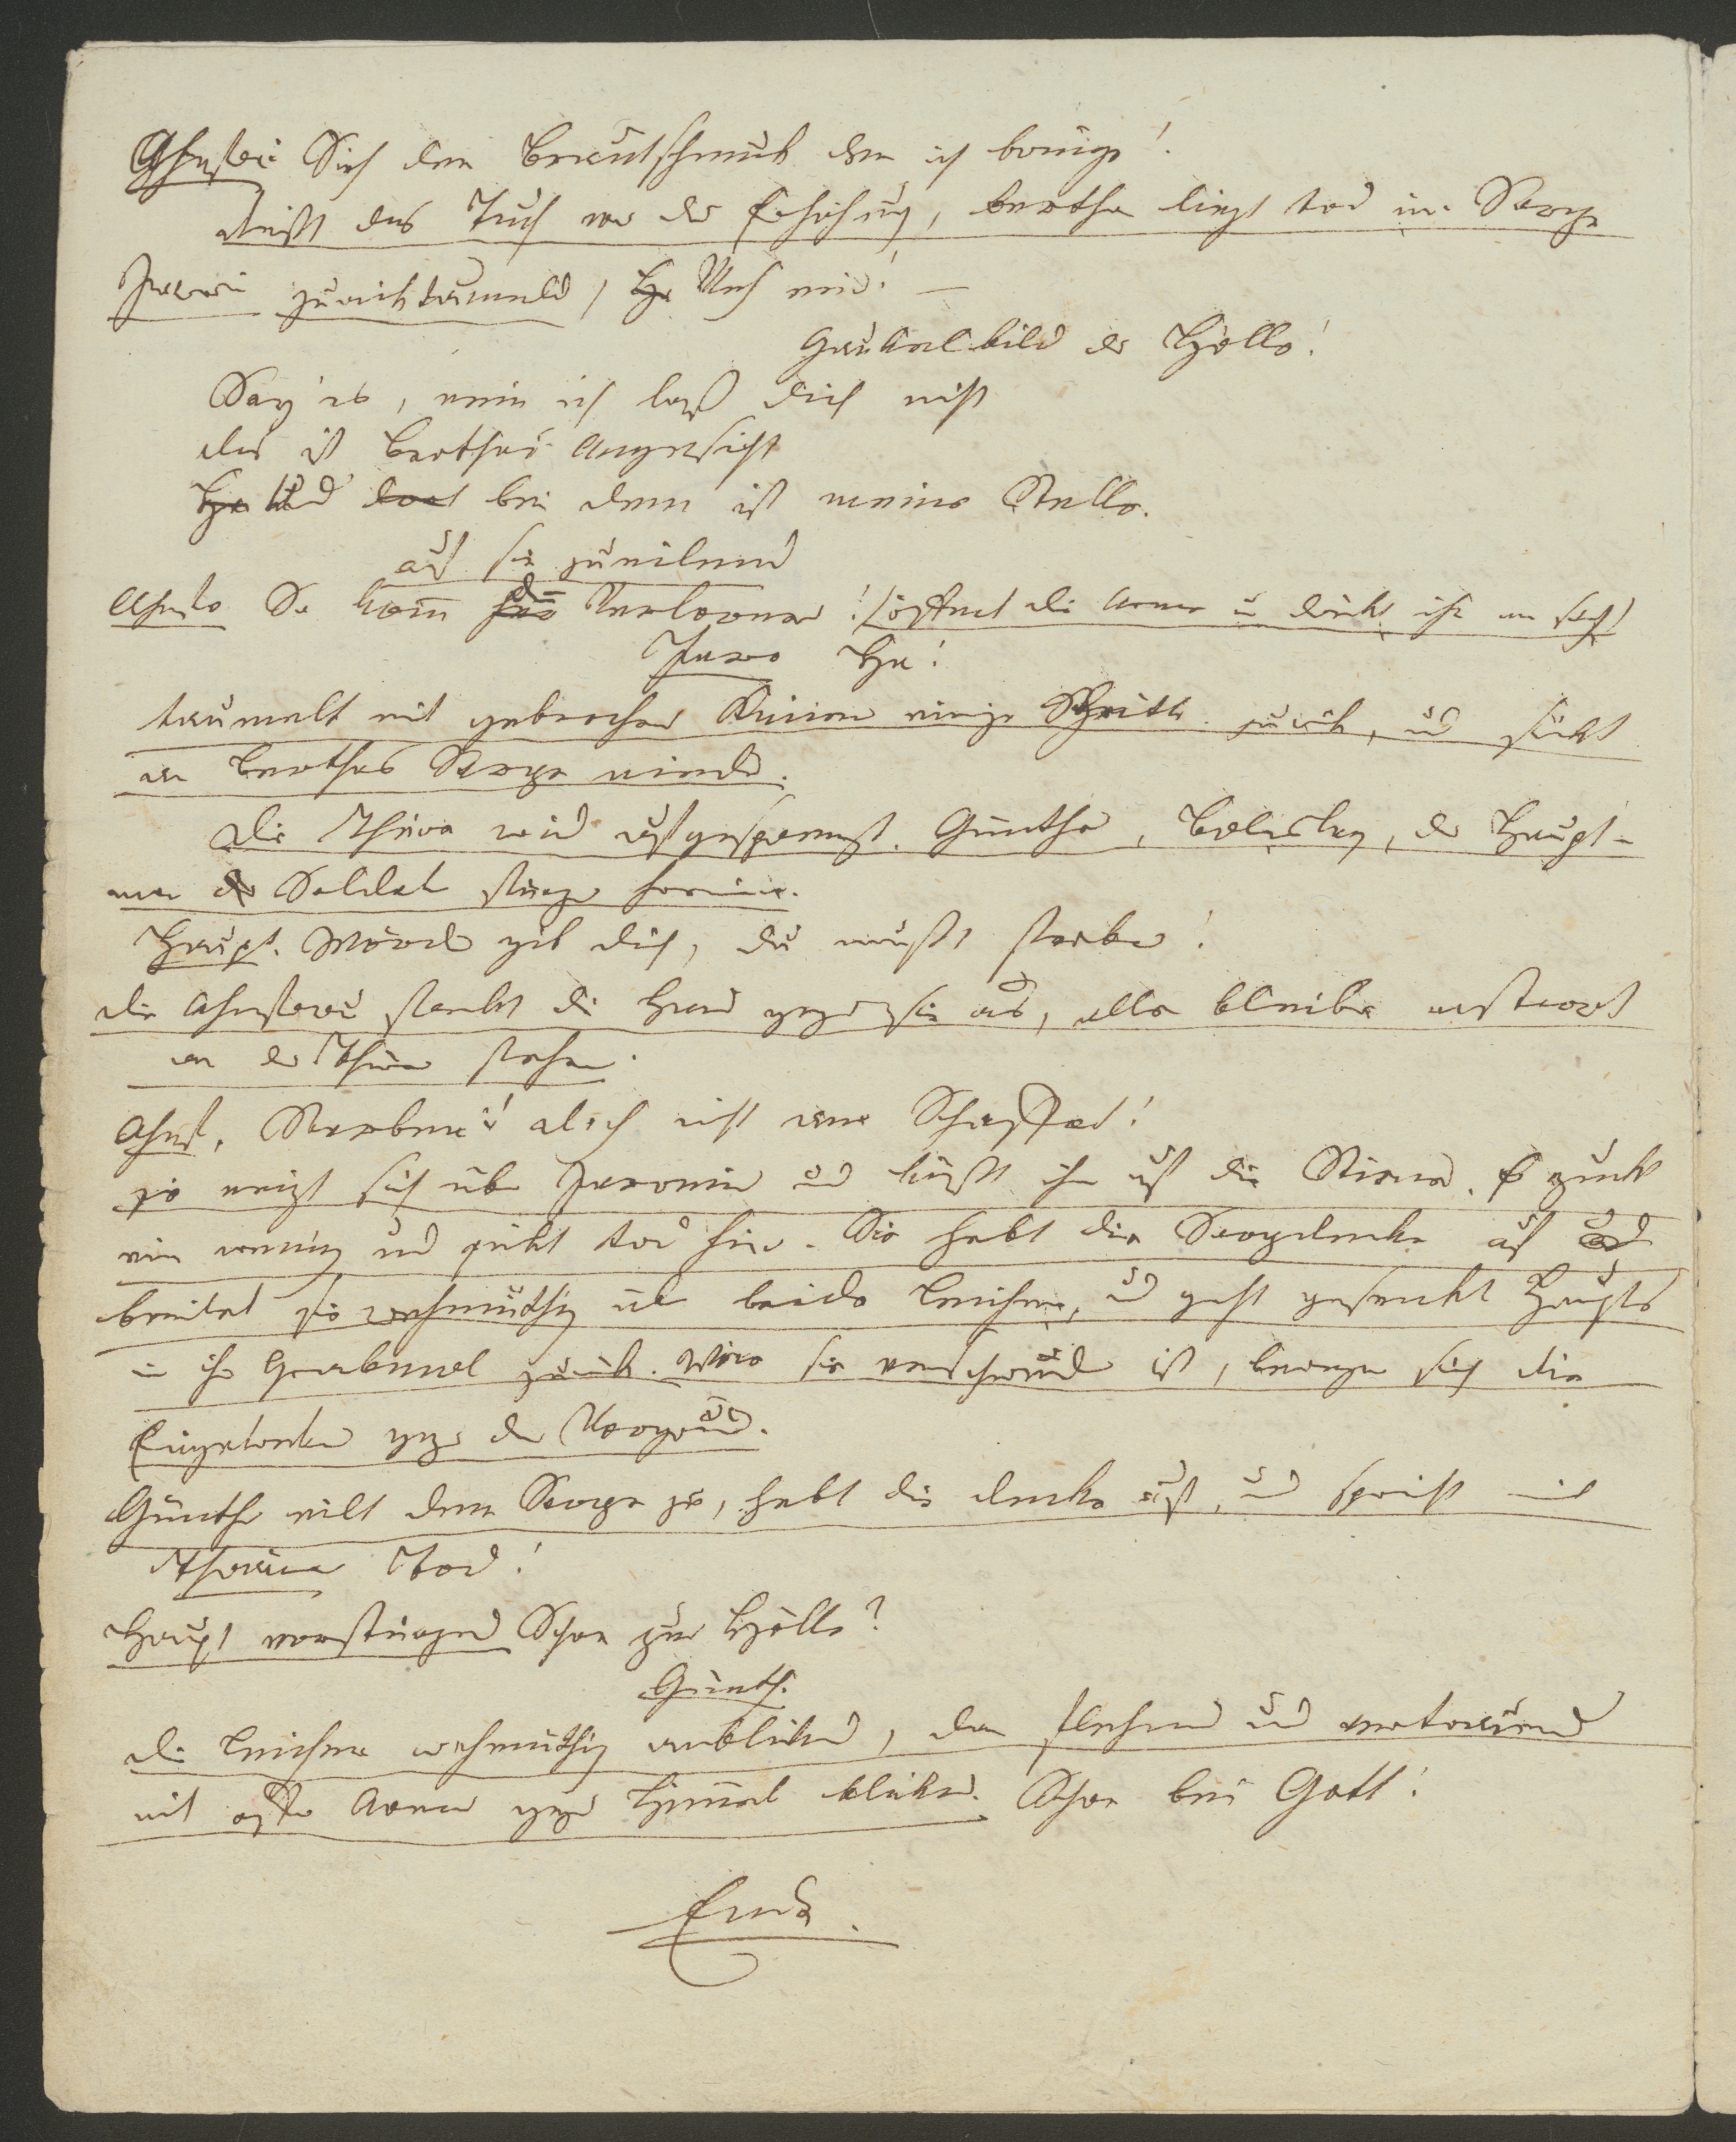 Ahnfrau Sieh den Brautschmuck den ich bringe!
reißt das Tuch von der Erhöhung, Bertha liegt tod im Sarge
Jaromir zurücktaumelnd, Ha Weh mir! —
Gaukelbild der Hölle!
Sey es, nein ich laß dich nicht
das ist Berthas Angesicht
Ha Und dort bei dem ist meine Stelle.
auf sie zueilend
Ahnfr So komm denn Verlorner! (öffnet die Arme u drückt ihn an sich)
Jaro Ha!
taumelt mit gebrochnen Knieen einige Schritte zurück, und sinkt
an Berthas Sarge nieder.
Die Thüre wird aufgesprengt. Günther, Boleslav, der Haupt-
man Soldaten stürzen herein.
Haupt. Mörder gib dich, du mußt sterben!
die Ahnfrau streckt die Hand gegen sie aus, alle bleiben erstarrt
an der Thüre stehen.
Ahnf.
sie neigt sich über Jaromir und küßt ihn auf die Stirne. Er zuckt
ein wenig und sinkt tod hin. Sie hebt die Sargdecke auf und
breitet sie wehmüthig über beide Leichen, und geht gesenkten Haupts
in ihr Grabmal zurück. Wie sie verschwunden ist, bewegen sich die
Eingetretnen gegen den Vorgrund.
Günther eilt dem Sarge zu, hebt die Decke auf, und spricht mit
Thränen Tod!
Haupt vorstürzend Schon zur Hölle?
Günth.
die Leichen wehmüthig anblickend, dan flehend und vertrauend
mit offnen Armen gegen Himmel blickend. Schon bei Gott!
Ende.